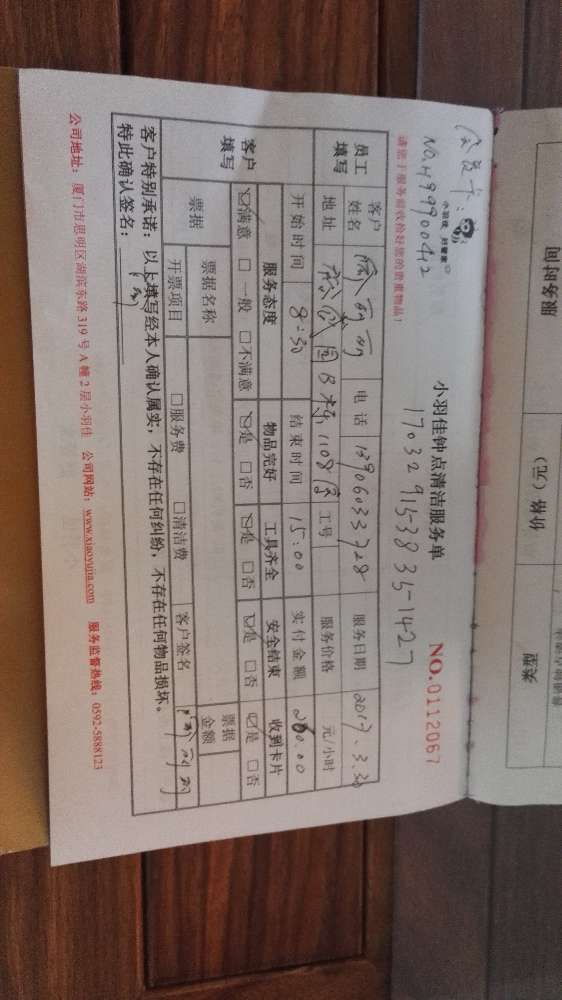 会员卡:
NO.H99900412
小羽佳 好管家
小羽佳钟点清洁服务单
请您于服务前收检好您的贵重物品!
17032915383 35-1427
NO.0112067
员工填写
客户姓名
丽丽
电话 13906033728
服务日期 2017.3.30
地址
园B栋1108室
工号
服务价格
元/小时
开始时间 8:30
结束时间 15:00
实付金额 200.00
客户填写
服务态度
物品完好
工具齐全
安全结束
收到卡片
☑满意 □一般 □不满意
☑是 □否
☑是 □否
☑是 □否
☑是 □否
票据
票据名称
票据金额
开票项目
□服务费 □清洁费
客户签名
丽丽
客户特别承诺:以上填写经本人确认属实,不存在任何纠纷,不存在任何物品损坏。
特此确认签名:
公司地址:厦门市思明区湖滨东路319号A幢2层小羽佳 公司网站:www.xiaoyujia.com 服务监督热线:0592-5888123
服务时间
价格(元)
类型